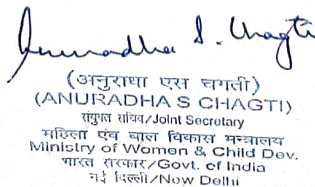 Anuradha S. Chagti
(अनुराधा एस चगती)
(ANURADHA S CHAGTI)
संयुक्त सचिव/Joint Secretary
महिला एंव बाल विकास मन्त्रालय
Ministry of Women & Child Dev.
भारत सरकार/Govt. of India
नई दिल्ली/New Delhi